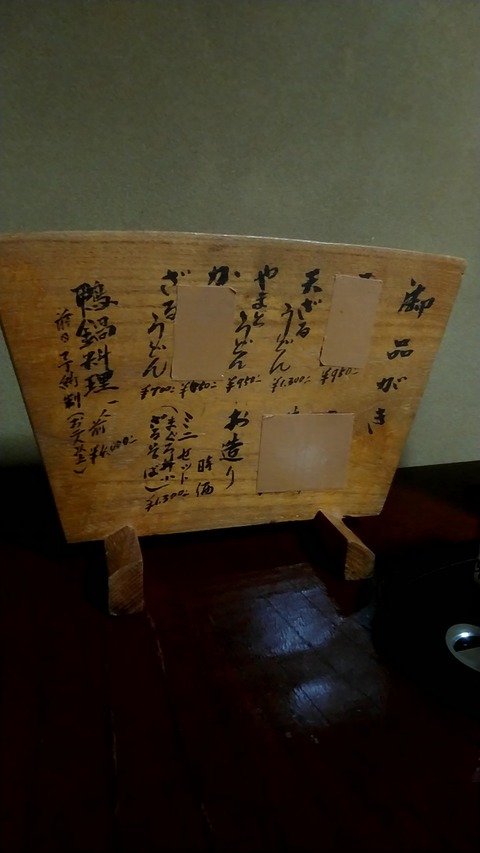 御品がき
¥950-
天ざるうどん
¥1,300-
やまとうどん
¥950-
か
ざるうどん
¥700-
お造り
時価
ミニセット
(まぐろ丼小
ざるそば)
¥1,300-
鴨鍋料理
一人前
¥4,000-